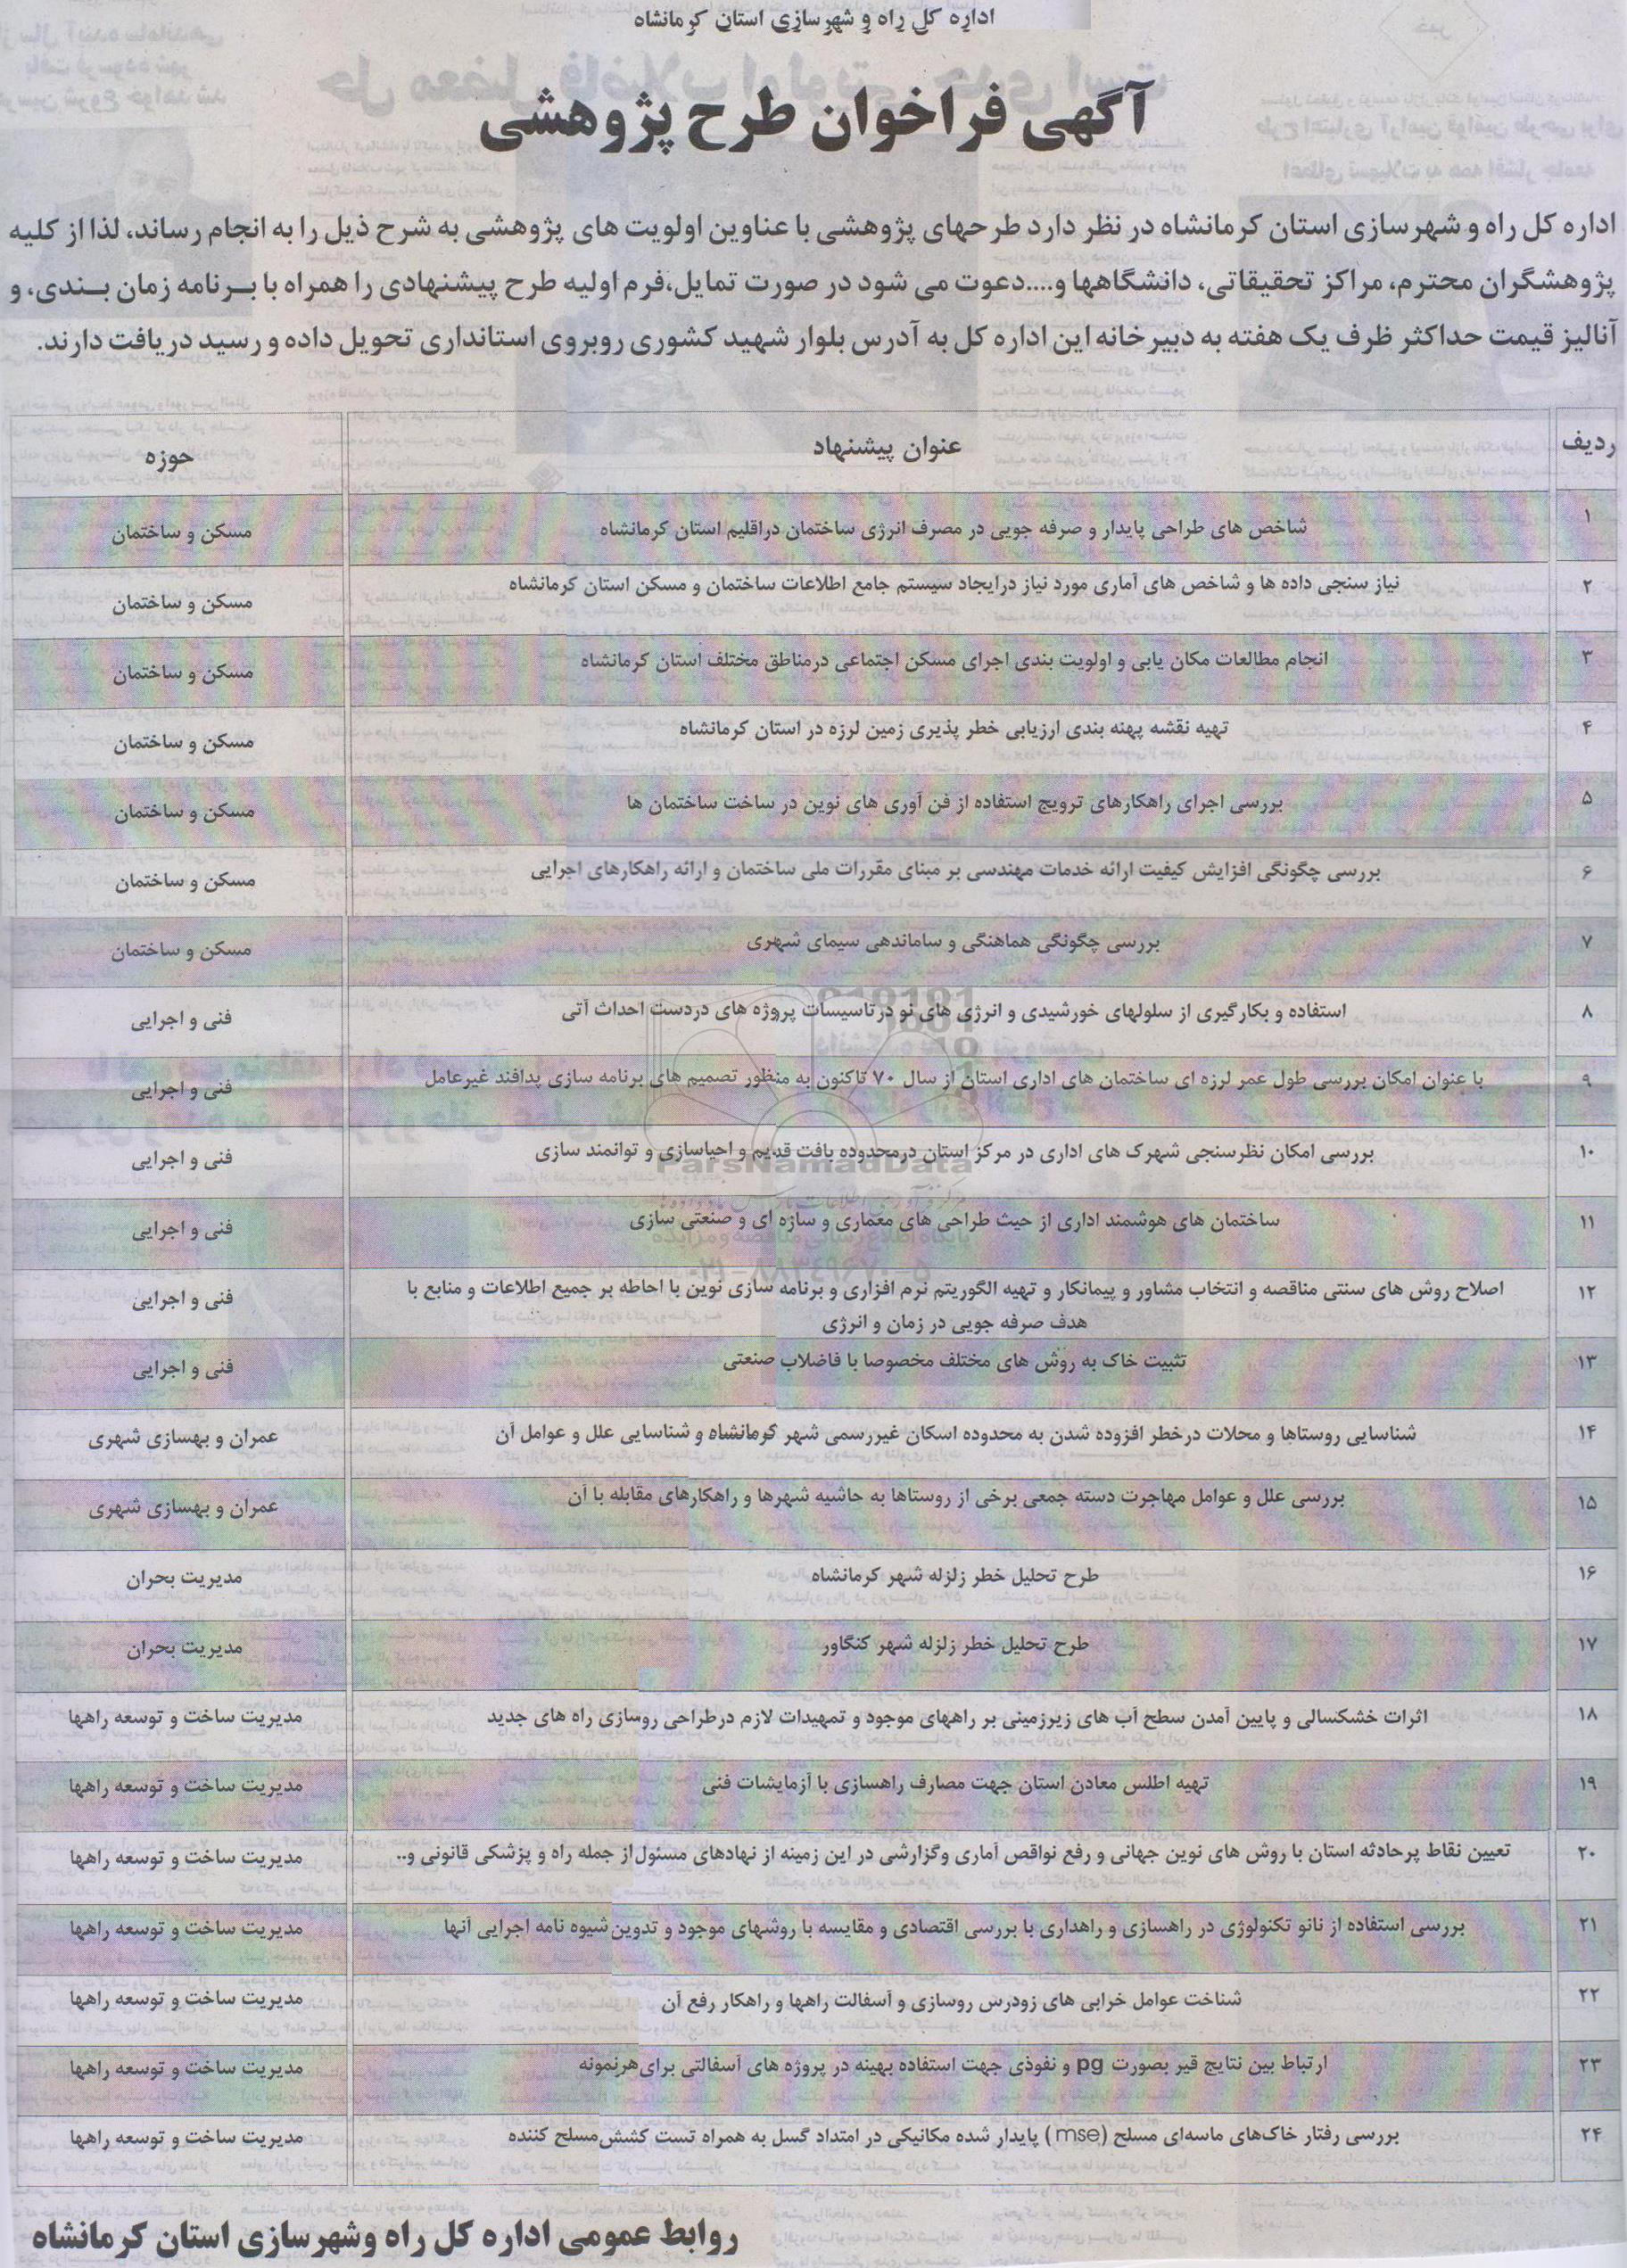 اداره کل راه و شهرسازی استان کرمانشاه
آگهی فراخوان طرح پژوهشی
اداره کل راه و شهرسازی استان کرمانشاه در نظر دارد طرحهای پژوهشی با عناوین اولویت های پژوهشی به شرح ذیل را به انجام رساند، لذا از کلیه
پژوهشگران محترم، مراکز تحقیقاتی، دانشگاهها و....دعوت می شود در صورت تمایل،فرم اولیه طرح پیشنهادی را همراه با بـرنامه زمان بـندی، و
آنالیز قیمت حداکثر ظرف یک هفته به دبیرخانه این اداره کل به آدرس بلوار شهید کشوری روبروی استانداری تحویل داده و رسید دریافت دارند.
ردیف عنوان پیشنهاد حوزه
۱ شاخص های طراحی پایدار و صرفه جویی در مصرف انرژی ساختمان دراقلیم استان کرمانشاه مسکن و ساختمان
۲ نیاز سنجی داده ها و شاخص های آماری مورد نیاز درایجاد سیستم جامع اطلاعات ساختمان و مسکن استان کرمانشاه مسکن و ساختمان
۳ انجام مطالعات مکان یابی و اولویت بندی اجرای مسکن اجتماعی درمناطق مختلف استان کرمانشاه مسکن و ساختمان
۴ تهیه نقشه پهنه بندی ارزیابی خطر پذیری زمین لرزه در استان کرمانشاه مسکن و ساختمان
۵ بررسی اجرای راهکارهای ترویج استفاده از فن آوری های نوین در ساخت ساختمان ها مسکن و ساختمان
۶ بررسی چگونگی افزایش کیفیت ارائه خدمات مهندسی بر مبنای مقررات ملی ساختمان و ارائه راهکارهای اجرایی مسکن و ساختمان
۷ بررسی چگونگی هماهنگی و ساماندهی سیمای شهری مسکن و ساختمان
۸ استفاده و بکارگیری از سلولهای خورشیدی و انرژی های نو درتاسیسات پروژه های دردست احداث آتی فنی و اجرایی
۹ با عنوان امکان بررسی طول عمر لرزه ای ساختمان های اداری استان از سال ۷۰ تاکنون به منظور تصمیم های برنامه سازی پدافند غیرعامل فنی و اجرایی
۱۰ بررسی امکان نظرسنجی شهرک های اداری در مرکز استان درمحدوده بافت قدیم و احیاسازی و توانمند سازی فنی و اجرایی
ParsNamadData
۱۱ ساختمان های هوشمند اداری از حیث طراحی های معماری و سازه ای و صنعتی سازی فنی و اجرایی
پایگاه اطلاع رسانی مناقصه و مزایده
۱۲ اصلاح روش های سنتی مناقصه و انتخاب مشاور و پیمانکار و تهیه الگوریتم نرم افزاری و برنامه سازی نوین با احاطه بر جمیع اطلاعات و منابع با فنی و اجرایی
هدف صرفه جویی در زمان و انرژی
۱۳ تثبیت خاک به روش های مختلف مخصوصا با فاضلاب صنعتی فنی و اجرایی
۱۴ شناسایی روستاها و محلات درخطر افزوده شدن به محدوده اسکان غیررسمی شهر کرمانشاه و شناسایی علل و عوامل آن عمران و بهسازی شهری
۱۵ بررسی علل و عوامل مهاجرت دسته جمعی برخی از روستاها به حاشیه شهرها و راهکارهای مقابله با آن عمران و بهسازی شهری
۱۶ طرح تحلیل خطر زلزله شهر کرمانشاه مدیریت بحران
۱۷ طرح تحلیل خطر زلزله شهر کنگاور مدیریت بحران
۱۸ اثرات خشکسالی و پایین آمدن سطح آب های زیرزمینی بر راههای موجود و تمهیدات لازم درطراحی روسازی راه های جدید مدیریت ساخت و توسعه راهها
۱۹ تهیه اطلس معادن استان جهت مصارف راهسازی با آزمایشات فنی مدیریت ساخت و توسعه راهها
۲۰ تعیین نقاط پرحادثه استان با روش های نوین جهانی و رفع نواقص آماری وگزارشی در این زمینه از نهادهای مسئول از جمله راه و پزشکی قانونی و.. مدیریت ساخت و توسعه راهها
۲۱ بررسی استفاده از نانو تکنولوژی در راهسازی و راهداری با بررسی اقتصادی و مقایسه با روشهای موجود و تدوین شیوه نامه اجرایی آنها مدیریت ساخت و توسعه راهها
۲۲ شناخت عوامل خرابی های زودرس روسازی و آسفالت راهها و راهکار رفع آن مدیریت ساخت و توسعه راهها
۲۳ ارتباط بین نتایج قیر بصورت pg و نفوذی جهت استفاده بهینه در پروژه های آسفالتی برای هرنمونه مدیریت ساخت و توسعه راهها
۲۴ بررسی رفتار خاک‌های ماسه‌ای مسلح (mse) پایدار شده مکانیکی در امتداد گسل به همراه تست کشش مسلح کننده مدیریت ساخت و توسعه راهها
روابط عمومی اداره کل راه وشهرسازی استان کرمانشاه